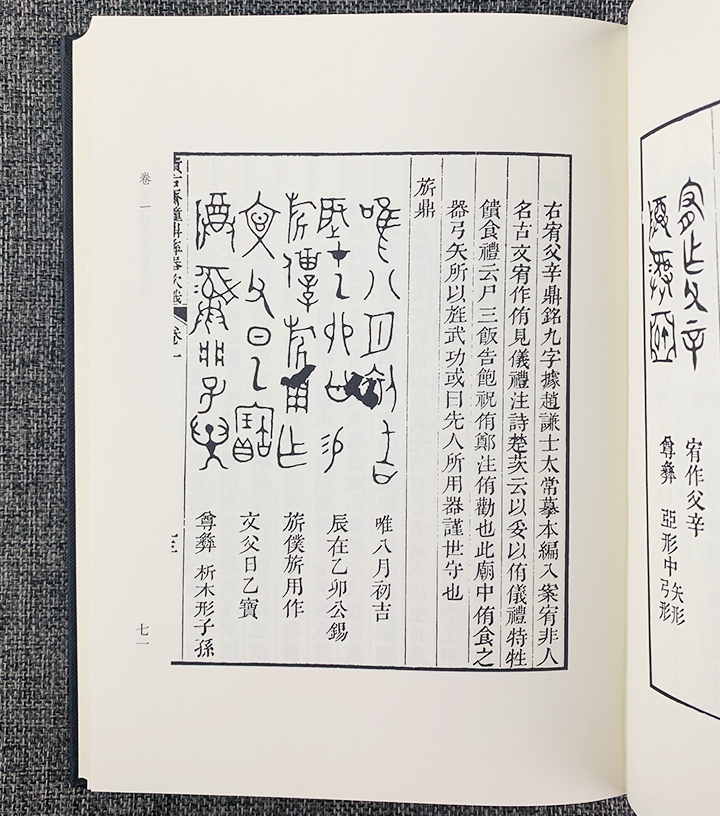 宥作父辛
尊彝 亞形中 矢形 弓形
右宥父辛鼎銘九字據趙謙士太常摹本編入案宥非人
名古文宥作侑見儀禮注詩楚茨云以妥以侑儀禮特牲
饋食禮云尸三飯告飽祝侑鄭注侑勸也此廟中侑食之
器弓矢所以旌武功或曰先人所用器謹世守也
旂鼎
唯八月初吉
辰在乙卯公錫
旂僕旂用作
文父日乙寶
尊彝 析木形子孫
積古齋鐘鼎彝器款識 卷一
卷一
七一